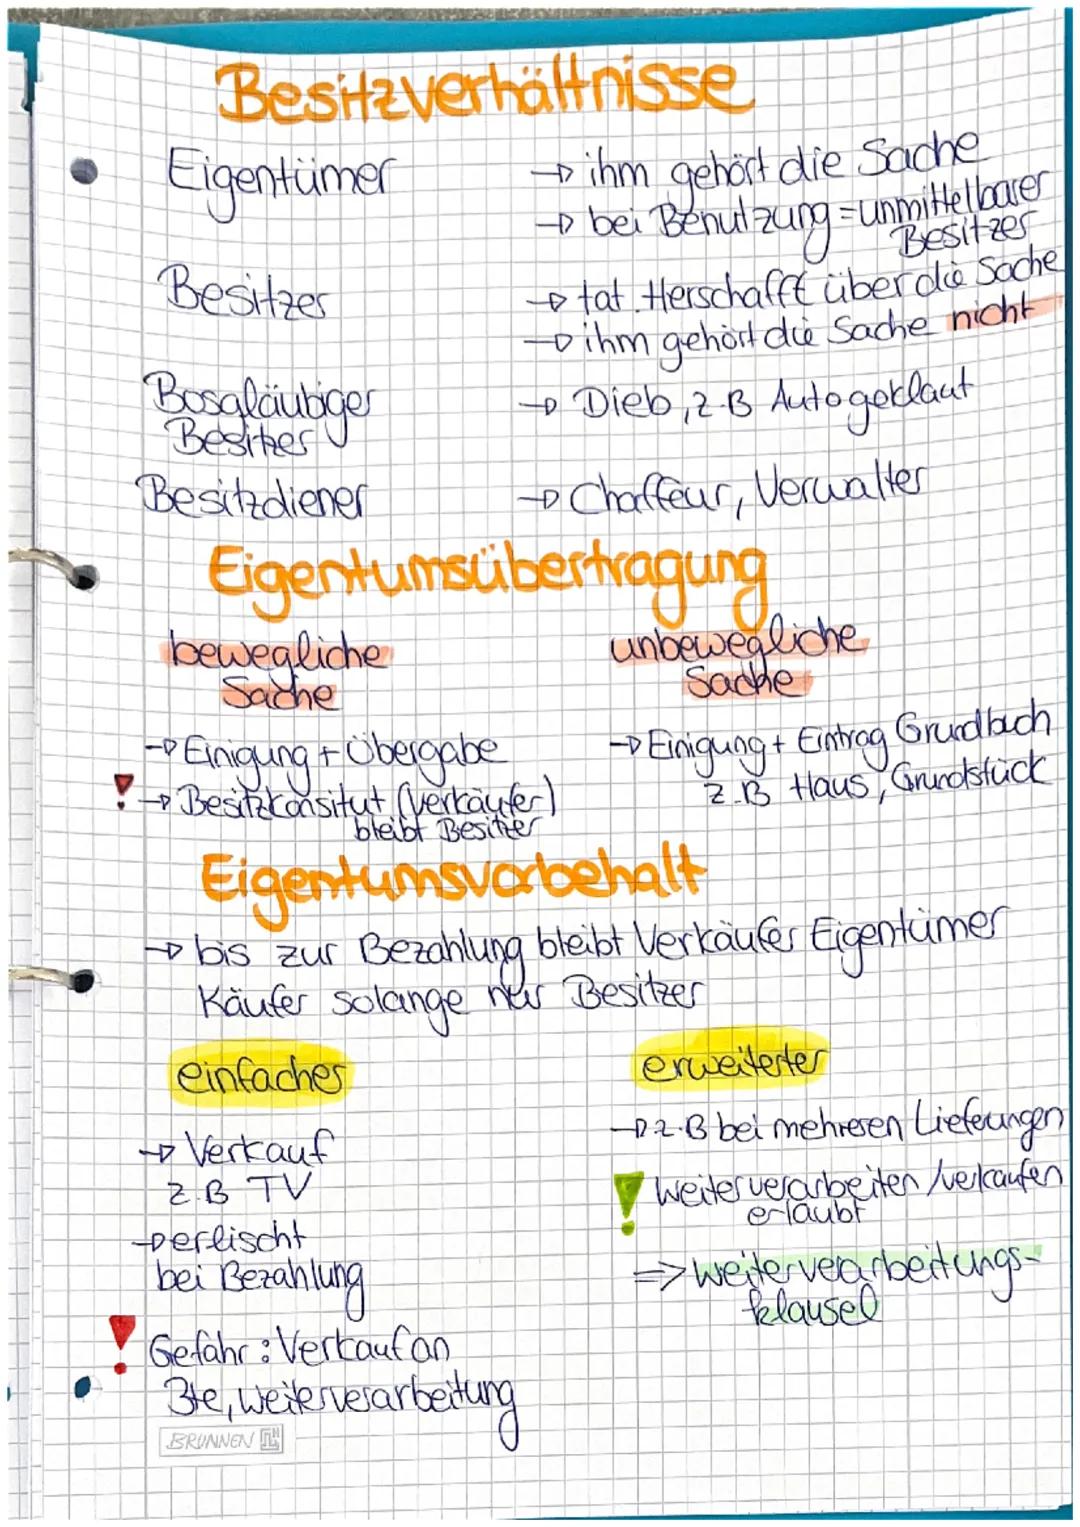 Besitzverhältnisse
Eigentümer → ihm gehört die Sache
→ bei Benutzung = unmittelbarer
Besitzer
Besitzer → tat. Herschafft über die Sache
→ ihm gehört die Sache nicht
Bösgläubiger → Dieb, z.B Auto geklaut
Besitzer
Besitzdiener → Chaffeur, Verwalter
Eigentumsübertragung
bewegliche unbewegliche
Sache Sache
→ Einigung + Übergabe → Einigung + Eintrag Grundbuch
! → Besitzkonsitut (Verkäufer) z.B Haus, Grundstück
bleibt Besitzer
Eigentumsvorbehalt
→ bis zur Bezahlung bleibt Verkäufer Eigentümer
Käufer solange nur Besitzer
einfacher erweiterter
→ Verkauf → z.B bei mehreren Lieferungen
z.B TV ! Weiterverarbeiten /verkaufen
erlaubt
→ erlischt
bei Bezahlung => Weiterverarbeitungs-
klausel
! Gefahr: Verkauf an
3te, weiterverarbeitung
BRUNNEN